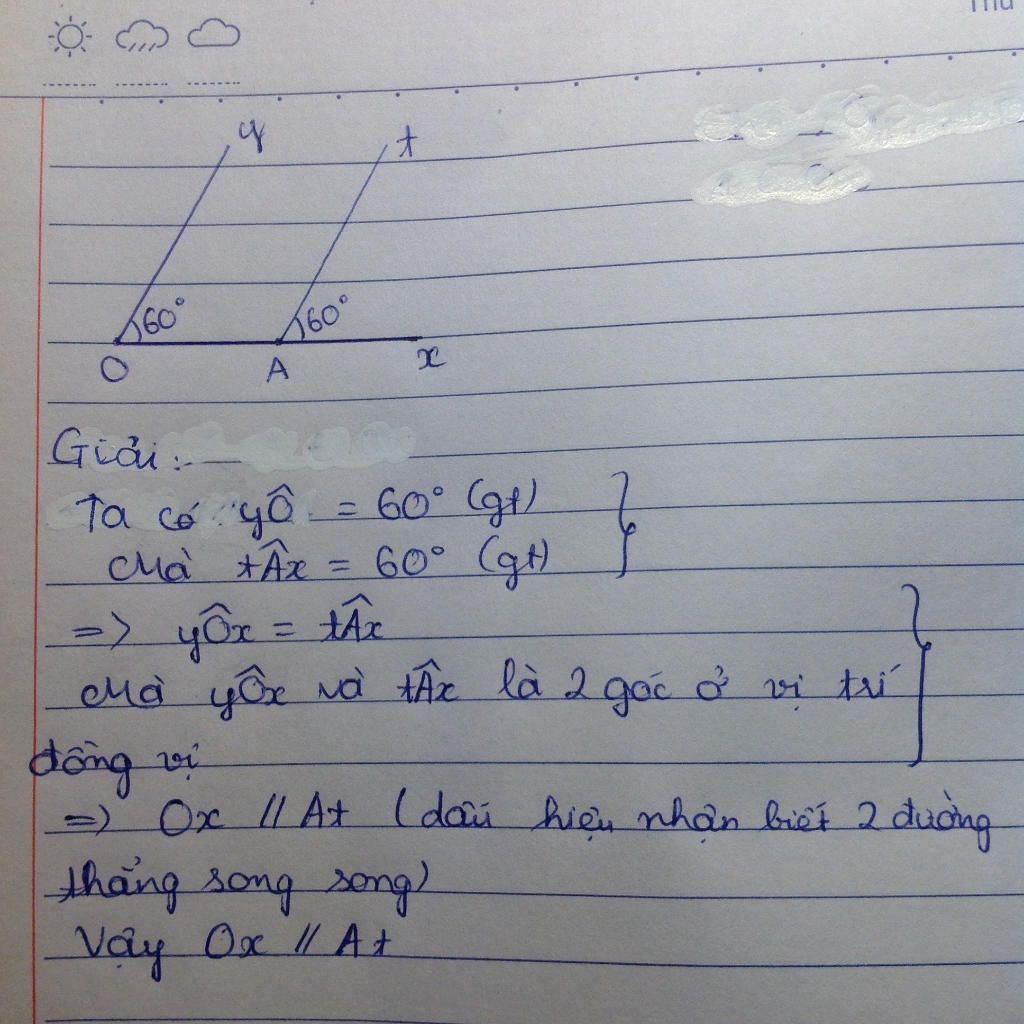 Thứ
y
t
60°
60°
O
A
x
Giải:
Ta có yÔ = 60° (gt)
Mà tÂx = 60° (gt)
=> yÔx = tÂx
Mà yÔx và tÂx là 2 góc ở vị trí
đồng vị
=> Ox // At (dấu hiệu nhận biết 2 đường
thẳng song song)
Vậy Ox // At